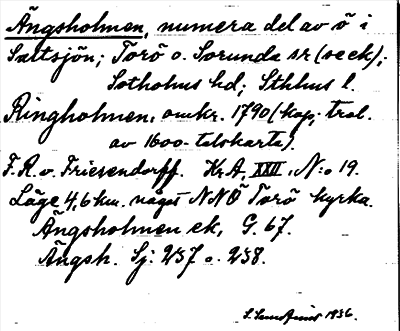 Ängsholmen, numera del av ö i
Saltsjön; Torö o. Sorunda sr (se ek);
Sotholms hd; Sthlms l.
Ringholmen, omkr. 1790 (kop. trol.
av 1600-talskarta).
F. R. v. Friesendorff. Kr. A, XXII, N:o 19.
Läge 4,6 km. något NNÖ Torö kyrka.
Ängsholmen ek, G. 67.
Ängsh. Sj: 257 o. 258.
1936.